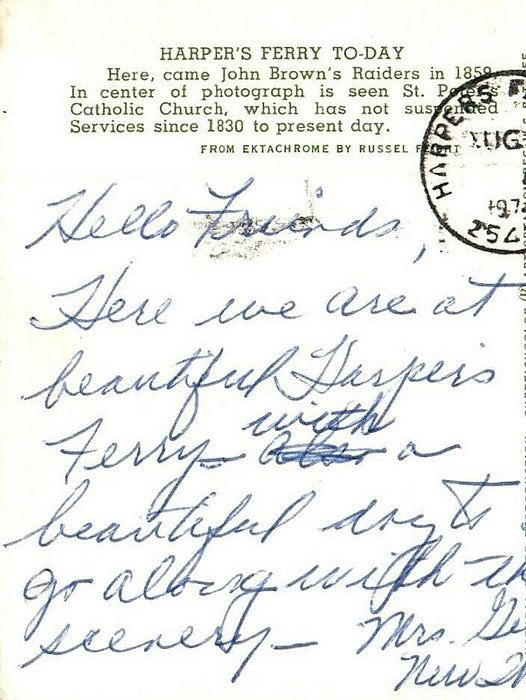 HARPER'S FERRY TO-DAY
Here, came John Brown's Raiders in 1859.
In center of photograph is seen St. Peter's
Catholic Church, which has not suspended
Services since 1830 to present day.
FROM EKTACHROME BY RUSSEL
HARPERS
AUG
197
254
Hello Friends,
Here we are at
beautiful Harpers
with
Ferry - a
beautiful day to
go along with
scenery - Mrs.
New